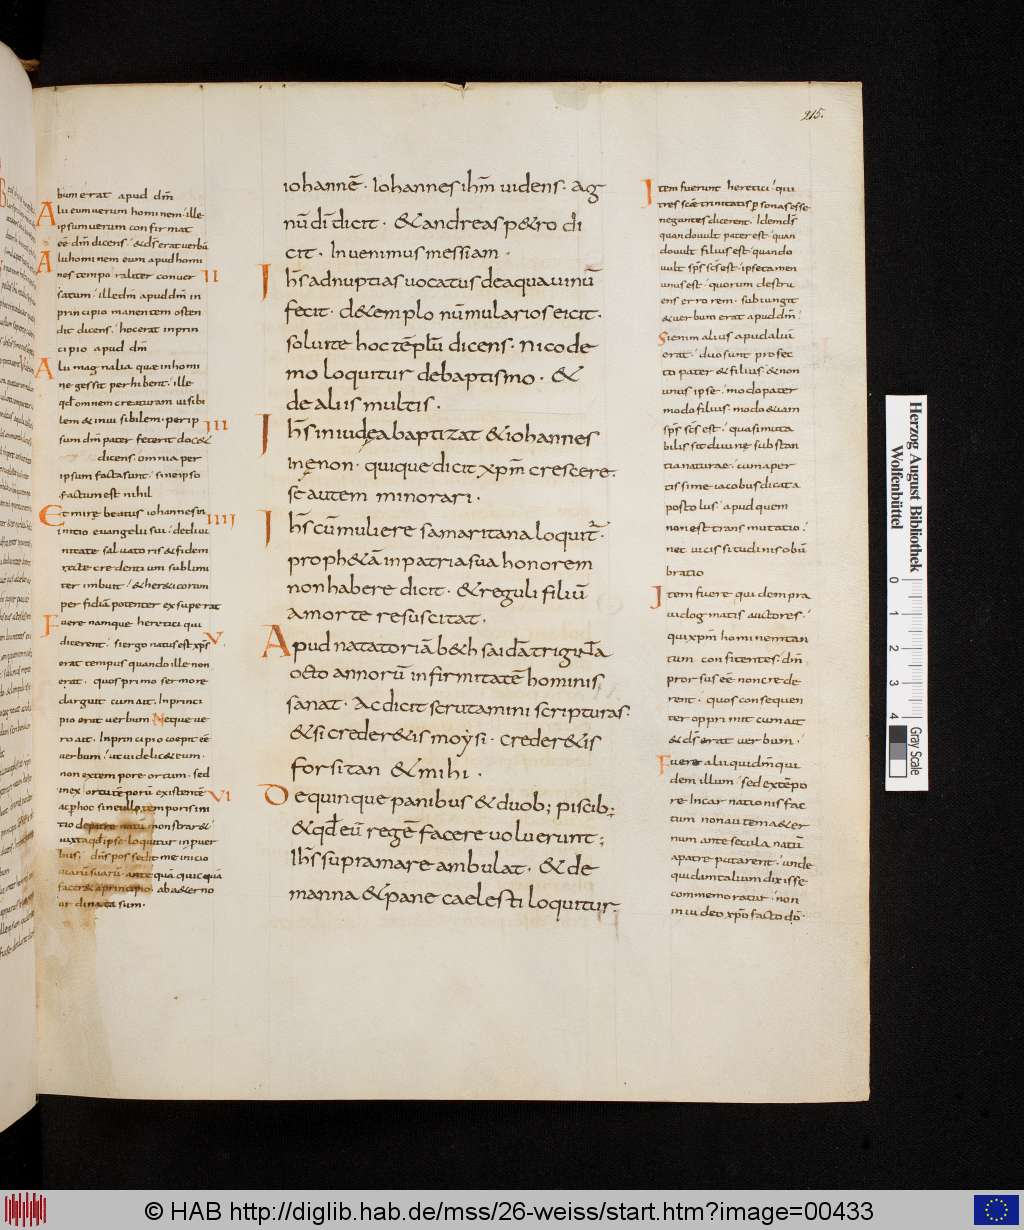 215.
bum erat apud dm̄
Alii eum verum hominem · ille
ipsum verum confirmat
eē dm̄ dicens · & ds̄ erat verbū
Alii hominem eum apud homi
nes tempo raliter conver
satum · ille dm̄ apud dm̄ in
principio manentem osten
dit dicens · hoc erat in prin
cipio apud dm̄
Alii magnalia que in homi
ne gessit perhibent · ille
qd̄ omnem creaturam visibi
lem & invisibilem · per ip
sum dm̄ pater fecerit doc&
dicens · omnia per
ipsum facta sunt · sine ipso
factum est nihil
Et mire beatus iohannes in
initio evangelii sui · de divi
nitate salvatoris & fidem
recte credentium sublimi
ter imbuit · & hereticorum
per fidiā potenter exsuperat
Fuere namque heretici qui
dicerent · si ergo natus est xp̄s
erat tempus quando ille non
erat · quos primo sermone
darguit cum ait · In princi
pio erat verbum Neque ve
ro ait · In principio coepit eē
verbum · ut videlic& eum ·
non ex tempore ortum · sed
in ex ortu tēporū existentē
ac p̄ hoc sine ullo temporis ini
tio de patre natū monstrar& ·
iuxta qd̄ ipse loquitur in pver
biis · dn̄s possedit me in icio
viarū suarū · antequā quicquā
facer& a principio · ab &erno
ordinata sum ·
II
III
IIII
V
VI
iohannē · Iohannes ihm̄ videns · ag
nū dī dicit · & andreas p&ro di
cit · Invenimus messiam ·
Ihs̄ ad nuptias vocatus de aqua vinū
fecit · d& emplo nūmularios eicit ·
solvite hoc tēplū dicens · Nicode
mo loquitur de baptismo · &
de aliis multis ·
Ihs̄ in iudea baptizat & iohannes
in enon · quique dicit xpm̄ crescere ·
se autem minorari ·
Ihs̄ cū muliere samaritana loquit̄ ·
proph&ā in patria sua honorem
non habere dicit · & reguli filiū
a morte resuscitat ·
Apud natatoriā b&hsaidā triginta
octo annorū infirmitatē hominis
sanat · Ac dicit scrutamini scripturas ·
& si creder&is moysi · creder&is
forsitan & mihi ·
De quinque panibus & duob; piscib;
& qd̄ eū regē facere voluerunt ;
Ihs̄ supra mare ambulat · & de
manna & pane caelesti loquitur ·
Item fuerunt heretici · qui
tres scāe trinitatis psonas esse
negantes dicerent · Idem ds̄
quando vult pater est · quan
do vult filius est · quando
vult sp̄s sc̄s est · ipse tamen
unus est · quorum destru
ens errorem · subiungit
& verbum erat apud dm̄ ·
Si enim alius apud aliū
erat · duo sunt profec
to pater & filius · & non
unus ipse · modo pater
modo filius · modo & iam
sp̄s sc̄s est · quasi muta
bilis sit divine substan
tia naturae · cum aper
tissime iacobus dicat a
posto lus · apud quem
non est transmutatio ·
nec vicissitudinis obū
bratio
Item fuere quidem pra
vi dogmatis auctores ·
qui xpm̄ hominem tan
tum confitentes · dm̄
prorsus eē non crede
rent · quos consequen
ter opprimit cum ait
& ds̄ erat verbum ·
Fuere alii qui dm̄ qui
dem illum · sed ex tēpo
re Incarnationis fac
tum non autem &er
num ante secula natū
a patre putarent · unde
quidam talium dixisse
commemoratur · non
invideo xpō facto dō ·
Herzog August Bibliothek
Wolfenbüttel
0 1 2 3 4
Gray Scale
© HAB http://diglib.hab.de/mss/26-weiss/start.htm?image=00433